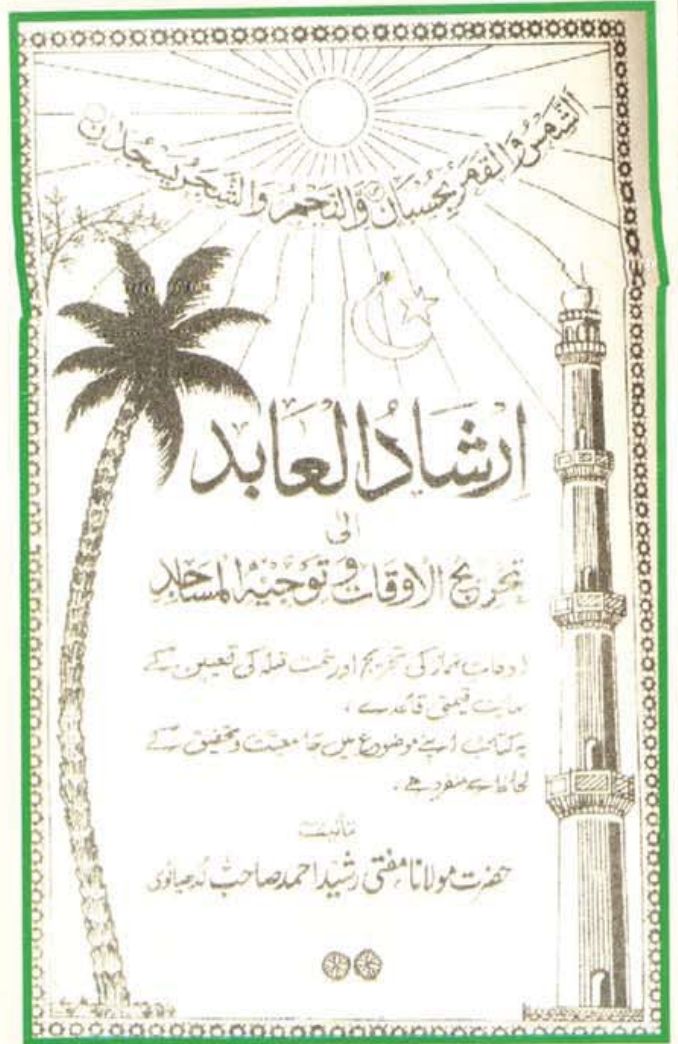 اَلشَّمْسُ وَالْقَمَرُ بِحُسْبَانٍ وَّالنَّجْمُ وَالشَّجَرُ يَسْجُدٰنِ
اِرْشَادُ الْعَابِد
الیٰ
تخریج الاوقات و توجیه المساجد
اوقات نماز کی تخریج اور سمت قبلہ کی تعیین کے
نہایت قیمتی قاعدے ،
یہ کتاب اپنے موضوع میں جامعیت و تحقیق کے
لحاظ سے منفرد ہے ،
تالیف
حضرت مولانا مفتی رشید احمد صاحب لدھیانوی